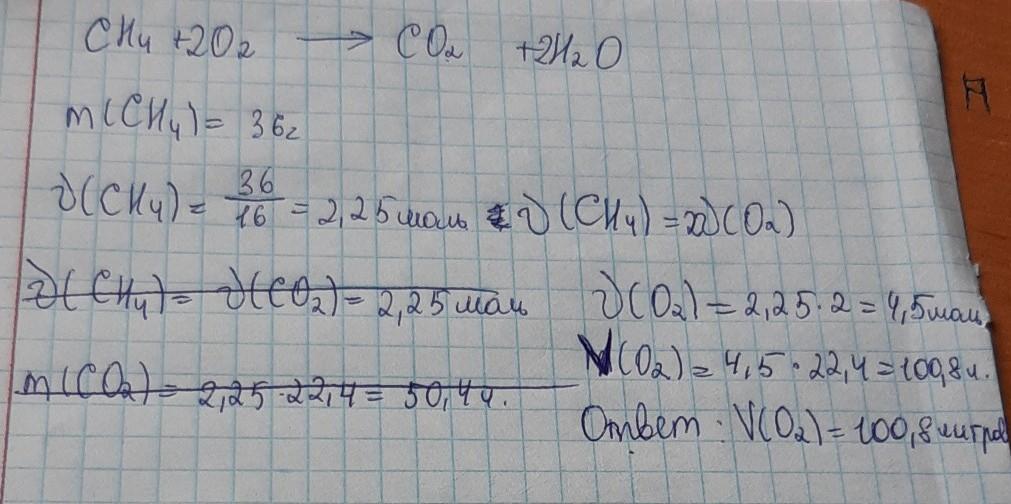 CH₄ + 2O₂ → CO₂ + 2H₂O
m(CH₄) = 36г
ν(CH₄) = 36/16 = 2,25 моль ν(CH₄) = 2ν(O₂)
ν(CH₄) = ν(CO₂) = 2,25 моль
ν(O₂) = 2,25 · 2 = 4,5 моль
m(CO₂) = 2,25 · 22,4 = 50,4 л.
V(O₂) = 4,5 · 22,4 = 100,8 л.
Ответ: V(O₂) = 100,8 литров